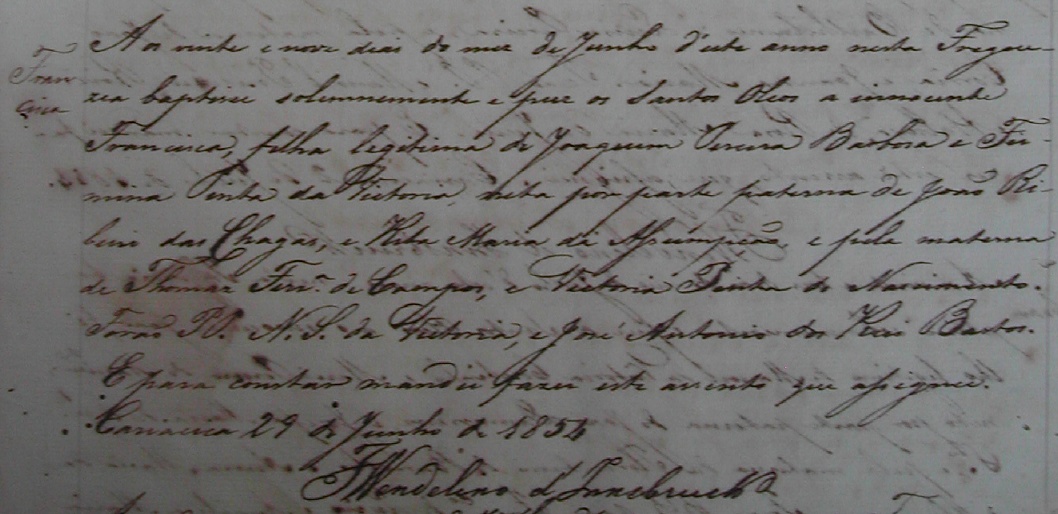 Fran
cisca
Aos vinte e nove dias do mez de Junho d'este anno nesta Fregue-
zia baptisei solemnemente e puz os Santos Oleos a innocente
Francisca, filha legitima de Joaquim Pereira Barbosa e Fir-
mina Pinta da Victoria, neta por parte paterna de João Ri-
beiro das Chagas, e Rita Maria da Assumpção, e pela materna
de Thomaz Ferr.ª de Campos, e Victoria Pinta do Nascimento.
Forão PP. N. S. da Victoria, e José Antonio dos Reis Bastos.
E para constar mandei fazer este assento que assignei.
Cariacica 29 de Junho de 1854
Fr Wendelino d'Innsbruck